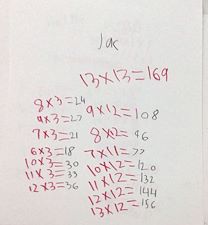 Jac
13×13=169
8×3=24
9×3=27
7×3=21
6×3=18
10×3=30
11×3=33
12×3=36
9×12=108
8×12=96
7×11=77
10×12=120
11×12=132
12×12=144
13×12=156